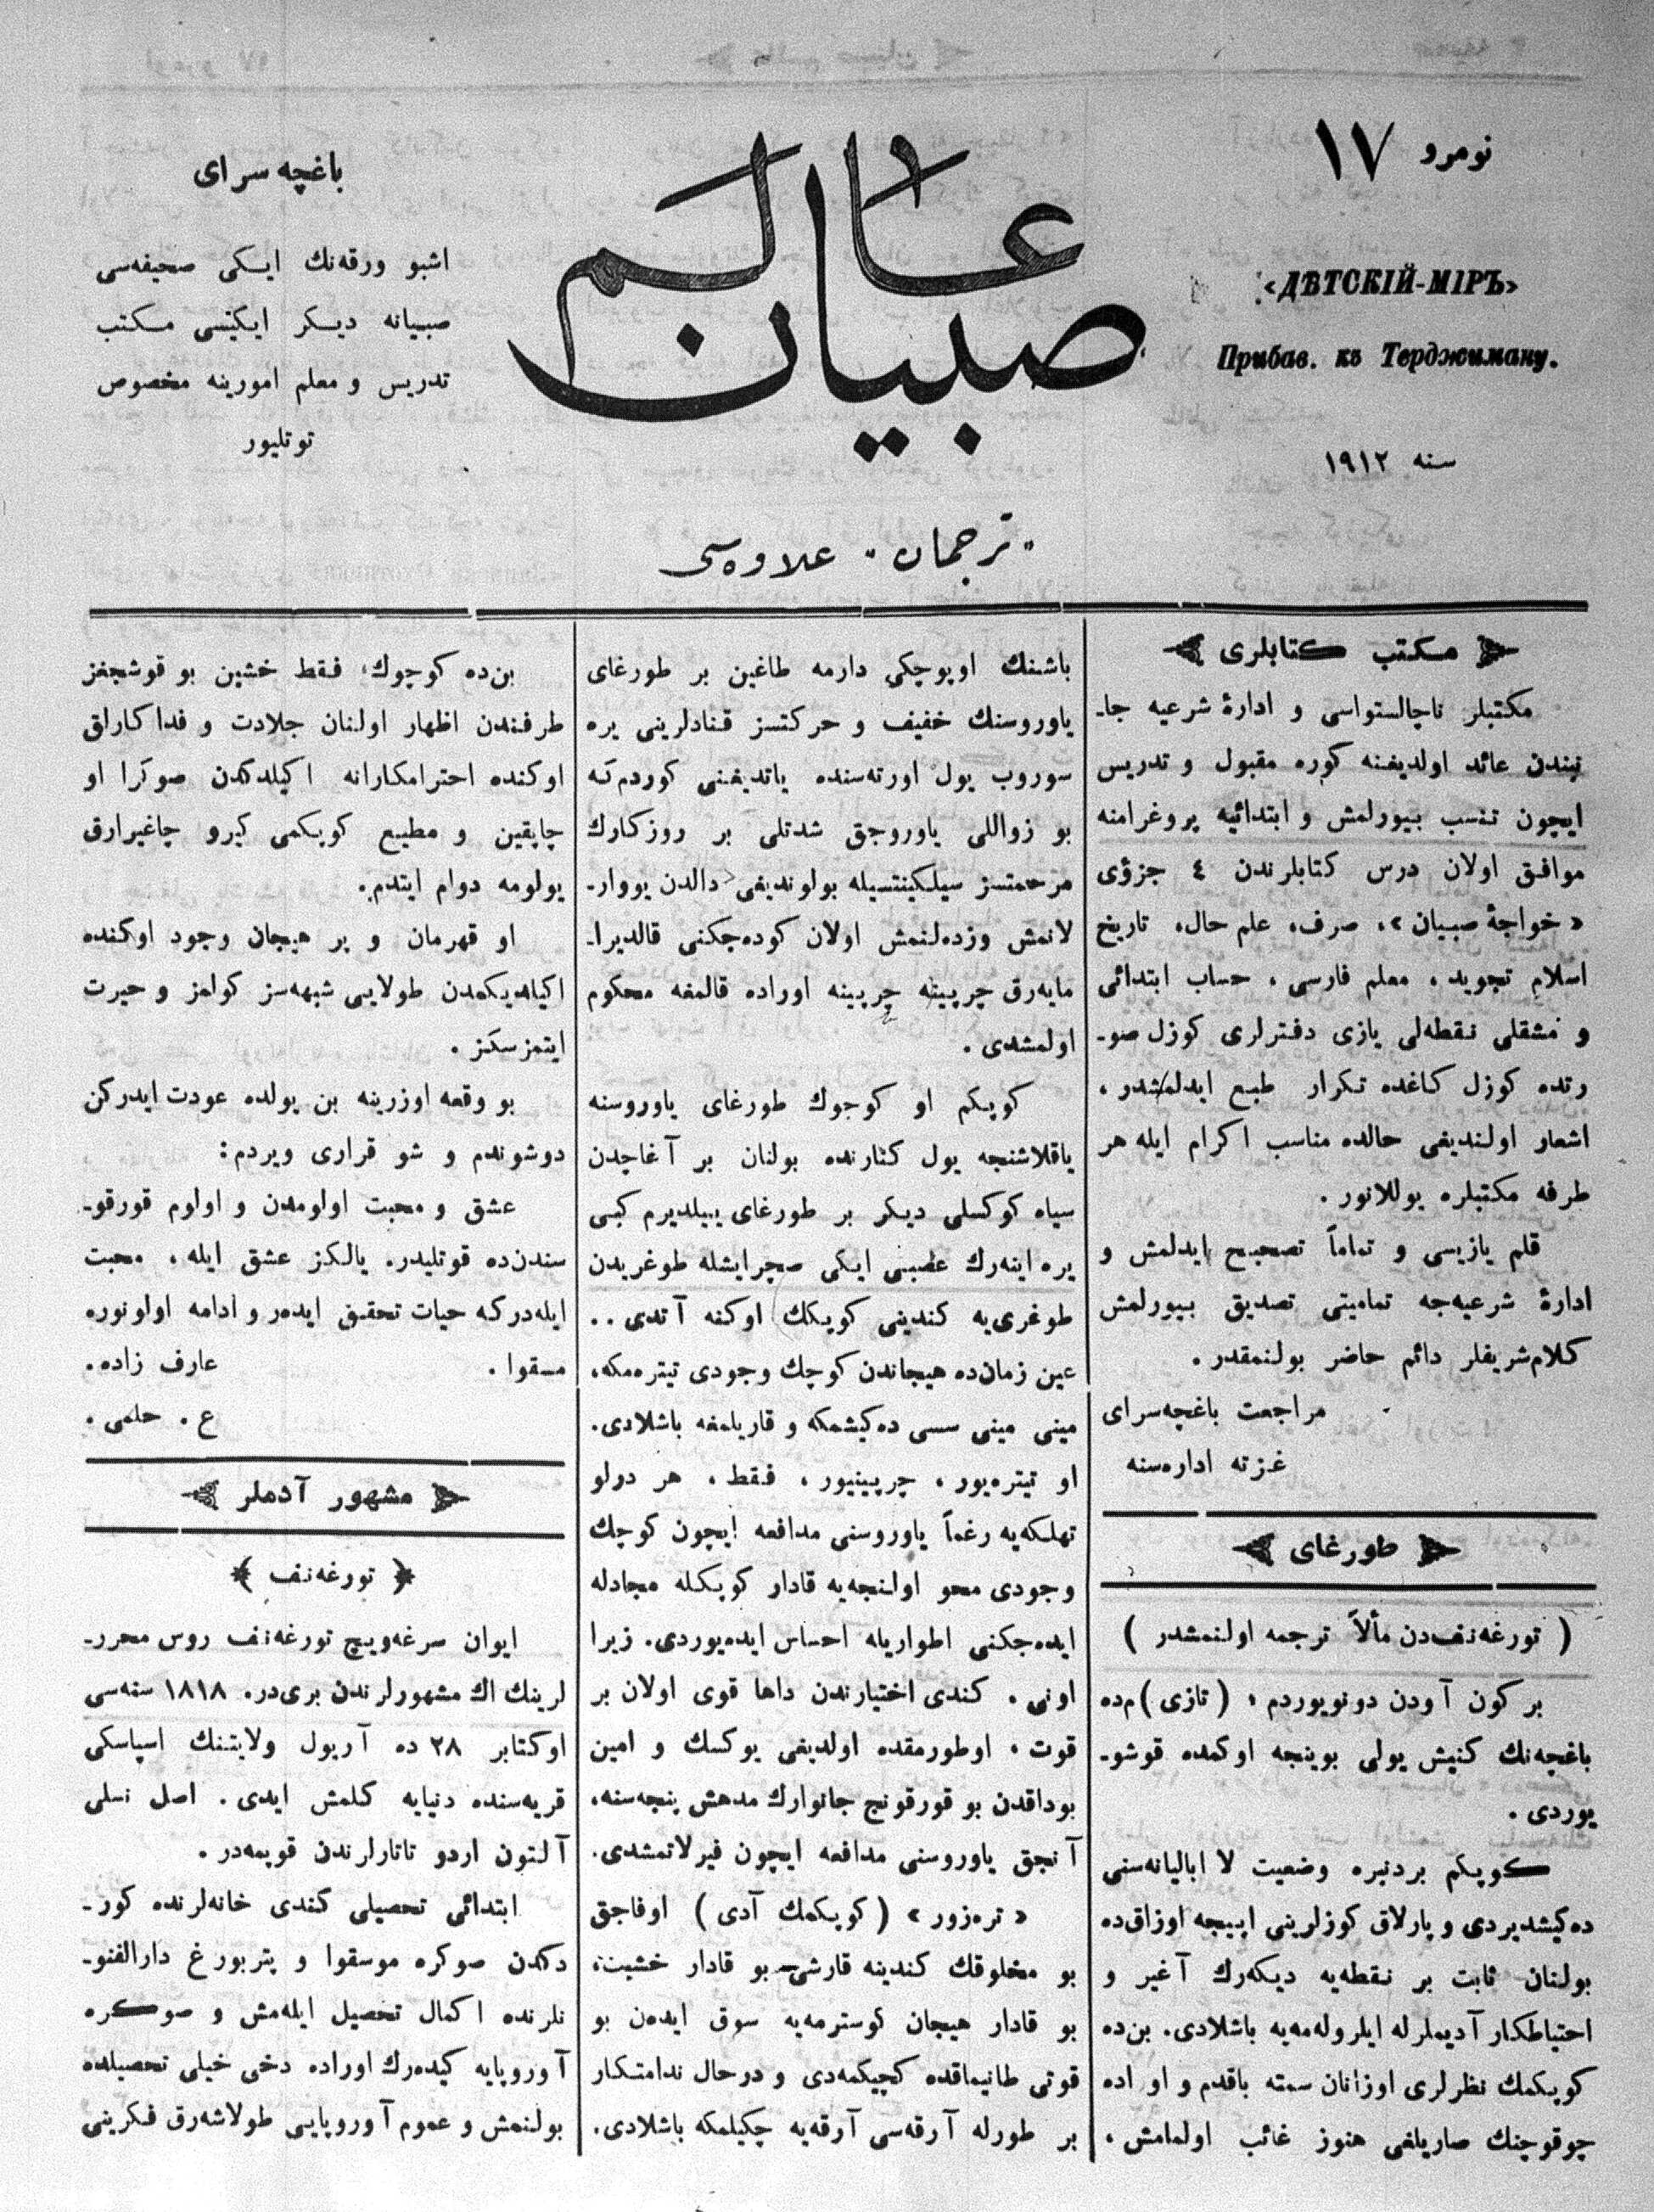 نومرو ١٧
«ДѢТСКІЙ-МІРЪ»
Прибав. къ Терджиману.
سنه ١٩١٢
عالم صبیان
„ترجمان“ علاوه‌سی
باغچه سرای
اشبو ورقه‌نك ایكی صحیفه‌سی
صبیانه دیكر ایكیسی مكتب
تدریس و معلم امورینه مخصوص
توتلیور
مكتب كتابلری
مكتبلر ناچالستواسی و ادارهٔ شرعیه جا-
نبندن عائد اولدیغنه كوره مقبول و تدریس
ایچون تنسب بیورلمش و ابتدائیه پروغرامنه
موافق اولان درس كتابلرندن ٤ جزؤی
«خواجهٔ صبیان»، صرف، علم حال، تاریخ
اسلام تجوید، معلم فارسی، حساب ابتدائی
و مشقلی نقطه‌لی یازی دفترلری كوزل صو-
رتده كوزل كاغده تكرار طبع ایدلمشدر،
اشعار اولندیغی حالده مناسب اكرام ایله هر
طرفه مكتبلره یوللانور.
قلم یازیسی و تماماً تصحیح ایدلمش و
ادارهٔ شرعیه‌جه تمامیتی تصدیق بیورلمش
كلام‌شریفلر دائم حاضر بولنمقدر.
مراجعت باغچه‌سرای
غزته اداره‌سنه
طورغای
( تورغه‌نف‌دن مألاً ترجمه اولنمشدر )
بر كون آودن دونویوردم، (تازی) م‌ده
باغچه‌نك كنیش یولی بوینجه اوكمده قوشو-
یوردی.
كوپكم بردنبره وضعیت لا ابالیانه‌سنی
ده‌كیشدیردی و پارلاق كوزلرینی اپیجه اوزاق‌ده
بولنان ثابت بر نقطه‌یه دیكه‌رك آغیر و
احتیاطكار آدیملرله ایلروله‌مه‌یه باشلادی. بن‌ده
كوپكمك نظرلری اوزانان سمته باقدم و او اده
چوقوچنك صاریلغی هنوز غائب اولمامش،
باشنك اوپوچكی دارمه طاغین بر طورغای
یاوروسنك خفیف و حركتسز قنادلرینی یره
سوروب یول اورته‌سنده یاتدیغنی كوردم‌كه
بو زواللی یاوروجق شدتلی بر روزكارك
مرحمتسز سیلكینتسیله بولوندیغی دالدن یووار-
لانمش وزده‌لنمش اولان كوده‌جكنی قالدیرا-
مایه‌رق چرپینه چرپینه اوراده قالمغه محكوم
اولمشدی.
كوپكم او كوجوك طورغای یاوروسنه
یاقلاشنجه یول كنارنده بولنان بر آغاجدن
سیاه كوكسلی دیكر بر طورغای ییلدیرم كبی
یره اینه‌رك عصبی ایكی صچرایشله طوغریدن
طوغری‌یه كندینی كوپكك اوكنه آتدی..
عین زمان‌ده هیجاندن كوچك وجودی تیتره‌مكه،
مینی مینی سسی ده‌كیشمكه و قاریلمغه باشلادی.
او تیتره‌یور، چرپینیور، فقط، هر درلو
تهلكه‌یه رغماً یاوروسنی مدافعه ایچون كوچك
وجودی محو اولنجه‌یه قادار كوپكله مجادله
ایده‌جكنی اطواریله احساس ایده‌یوردی. زیرا
اونی، كندی اختیارندن داها قوی اولان بر
قوت، اوطورمقده اولدیغی یوكسك و امین
بوداقدن بو قورقونج جانوارك مدهش پنجه‌سنه،
آنجق یاوروسنی مدافعه ایچون فیرلاتمشدی.
«تره‌زور» (كوپكمك آدی) اوفاجق
بو مخلوقك كندینه قارشی بو قادار خشیت،
بو قادار هیجان كوسترمه‌یه سوق ایده‌ن بو
قوتی طانیماقده كچیكمه‌دی و درحال ندامتكار
بر طورله آرقه‌سی آرقه‌یه چكیلمكه باشلادی.
بن‌ده كوچوك، فقط خشین بو قوشجغز
طرفندن اظهار اولنان جلادت و فداكارلق
اوكنده احترامكارانه اكیلدكدن صوكرا او
چاپقین و مطیع كوپكمی كیرو چاغیرارق
یولومه دوام ایتدم.
او قهرمان و پر هیجان وجود اوكنده
اكیلدیكمدن طولایی شبهه‌سز كولمز و حیرت
ایتمزسكز.
بو وقعه اوزرینه بن یولده عودت ایدركن
دوشوندم و شو قراری ویردم:
عشق و محبت اولومدن و اولوم قورقو-
سندن‌ده قوتلیدر. یالكز عشق ایله، محبت
ایله‌دركه حیات تحقیق ایده‌ر و ادامه اولونوره
مسقوا. عارف زاده.
ع. حلمی.
مشهور آدملر
تورغه‌نف
ایوان سرغه‌ویچ تورغه‌نف روس محرر-
لرینك اك مشهورلرندن بری‌در. ١٨١٨ سنه‌سی
اوكتابر ٢٨ ده آریول ولایتنك اسپاسكی
قریه‌سنده دنیایه كلمش ایدی. اصل نسلی
آلتون اردو تاتارلرندن قوپمه‌در.
ابتدائی تحصیلی كندی خانه‌لرنده كور-
دكدن صوكره موسقوا و پتربورغ دارالفنو-
نلرنده اكمال تحصیل ایله‌مش و صوكره
آوروپایه كیده‌رك اوراده دخی خیلی تحصیلده
بولنمش و عموم آوروپایی طولاشه‌رق فكرینی